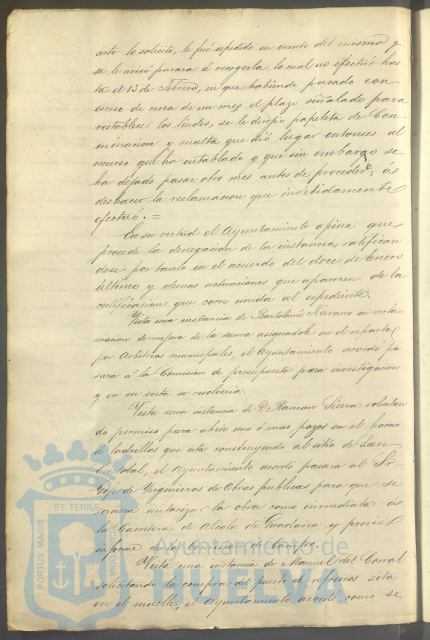 acto lo solicitó, le fué espedido en veinte del mismo y
se le avisó pasara á recogerla, la cual no efectuó has
ta el 13 de Febrero, en que habiendo pasado con
esceso de cerca de un mes el plazo señalado para
restablecer los lindes, se le dirijió papeleta de con
minacion y multa que dió lugar entonces al
recurso que ha entablado y que sin embargo se
ha dejado pasar otro mes antes de proceder á
deshacer la reclamacion que indebidamente
efectuó.=
En su virtud el Ayuntamiento opina que
procede la denegacion de la instancia ratifican
dose por tanto en el acuerdo del doce de Enero
último y demas actuaciones que aparecen de la
certificacion que corre unida al espediente.
Vista una instancia de Bartolomé Navarro en recla
macion de mejora de la suma asignadole en el reparto
por Arbitrios municipales, el Ayuntamiento acordó pa
sara á la Comision de presupuesto para investigacion
y en su vista se resolveria.
Vista una instancia de D. Ramon Sierra solicitan
do permiso para abrir uno ó mas pozos en el horno
de ladrillos que está construyendo al sitio de San
Cristobal, el Ayuntamiento acordó pasara al Sr
Gefe de Ingenieros de Obras publicas para que se
sirviera autorizar la obra como inmediata á
la Carretera de Alcalá de Guadaira y previo
informe de la Comision de Campo.
Vista una instancia de Manuel del Corral
solicitando la compra del puesto de refrescos sito
en el muelle, el Ayuntamiento acordó como se
PORTUS MARIS ET TERRAE
Ayuntamiento de
HUELVA